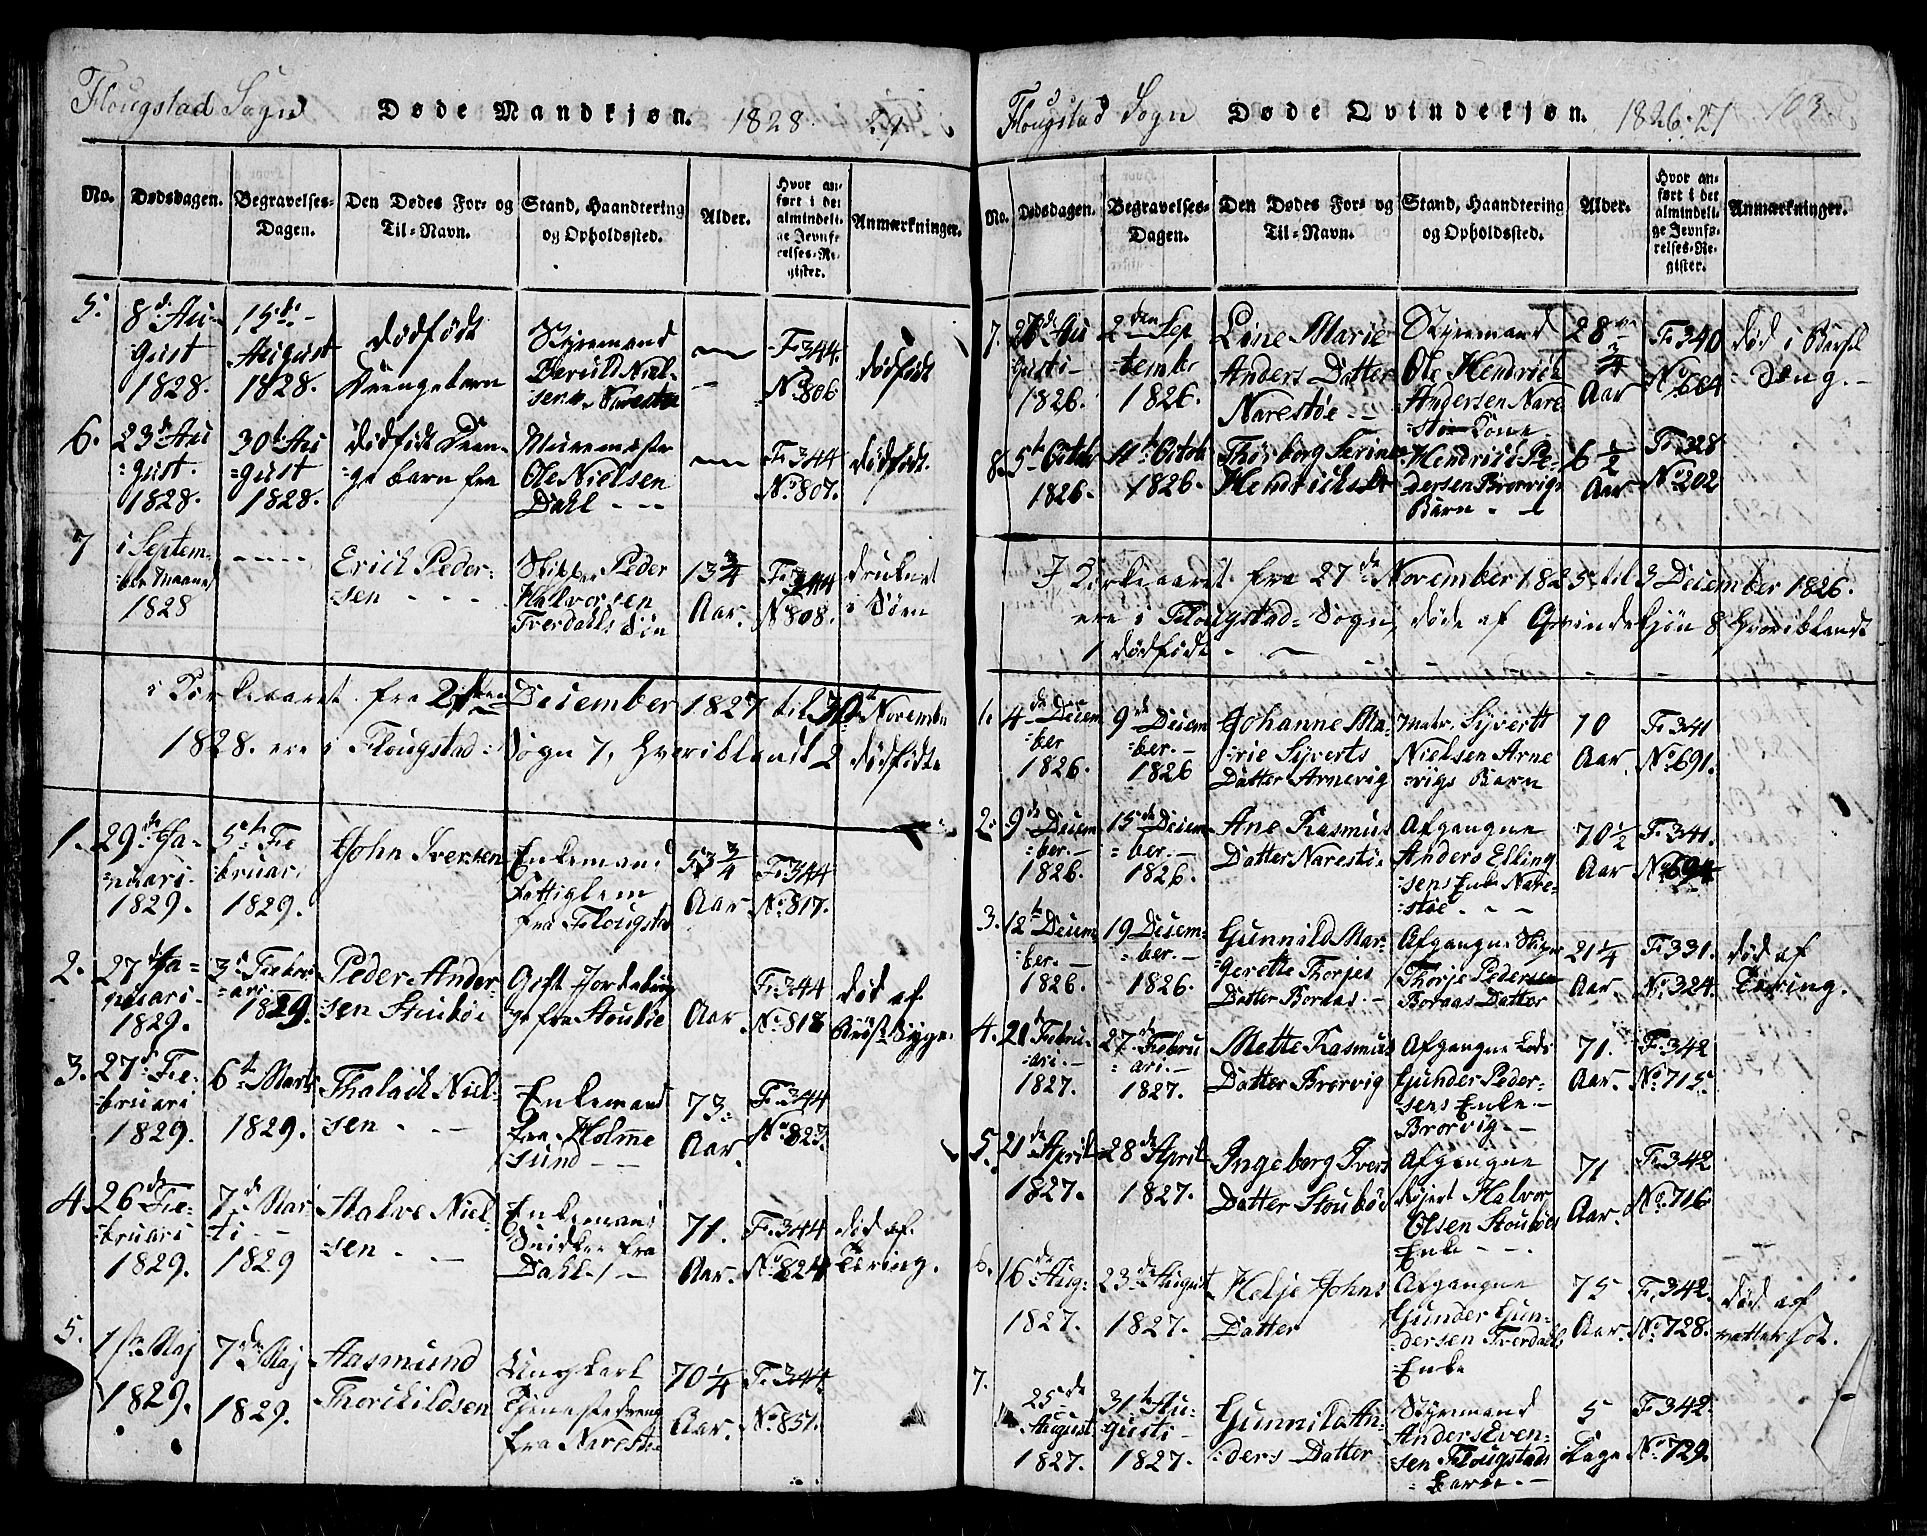 Flougstad Sogn Døde Mandkjøn. 1828. 29
No. Dødsdagen. Begravelses-Dagen. Den Dødes For- og Til-Navn. Stand, Haandtering og Opholdssted. Alder. Hvor anført i det almindelige Jevnførelses-Register. Anmærkninger.
5. 8de August 1828. 15de August 1828. dødfødt Drengebarn Styrmand Beruld Nielsen Narestøe — F. 344. No. 806. dødfødt
6. 23de August. 1828. 30te August 1828. dødfødt Drenge barn fra Ole Nielsen Dahl — F. 344 No. 807. dødfødt.
7 i September Maaned 1828 — Erich Pedersen Skipper Peder Halvorsen Tverdahls Søn 13 3/4 Aar. F. 344 No. 808. druknet i Søen
i Kirkeaaret fra 2den December 1827 til 30te Novembr
1828. ere i Flougstad Sogn 7, hvoriblandt 2 dødfødte
1. 29de Januari 1829. 5te Februari 1829. John Iversen Enkemand Fattiglem fra Flougstad 53 3/4 Aar F. 344 No. 817.
2. 27d Januari 1829. 3d Februari 1829. Peder Andersen Stoubøe Gift fra Stoubøe Aar. F. 344 No. 818 død af Brøst Syge.
3. 27d Februari 1829. 6te Marts 1829. Thalach Nielsen Enkemand fra Holmesund 73 Aar. F. 344 No. 823.
4. 26de Februari 1829. 7de Marti 1829 Halvo Nielsen Enkemand Snidker fra Dahl 71. Aar. F. 344 No. 824 død af Tæring.
5. 1ste Maj 1829. 7de Maj 1829. Aasmund Thorkildsen Ungkarl Tjenestedreng fra Narestøe 70 1/4 Aar. F. 344. No. 831.
Flougstad Sogn Døde Qvindekjøn. 1826. 27 103
No. Dødsdagen. Begravelses-Dagen. Den Dødes For- og Til-Navn. Stand, Haandtering og Opholdssted. Alder. Hvor anført i det almindelige Jevnførelses-Register. Anmærkninger.
7. 27de Augusti 1826. 2den September 1826. Line Marie Anders Datter Narestøe Styrmand Ole Hendrich Andersen Narestøe Kone 28 3/4 Aar F. 340 No. 684 død i Barsel Seng.
8. 5te Octob 1826. 11te Octob 1826. Thorborg Serine Hendrichs Dr Hendrich Pedersen Brørvigs Barn 6 1/2 Aar F. 328 No. 202
I Kirkeaaret fra 27de November 1825 til 3 December 1826.
ere i Flougstad Sogn, døde af Qvindekjøn 8 hvoriblandt
1 dødfødt
1. 4de December 1826. 9de December 1826 Johanne Marie Syverts Datter Arnevig Matr. Syvertt Nielsen Arnevigs Barn 10 Aar. F. 341 No. 691.
2. 9de December 1826. 15de December. 1826. Ane Rasmus Datter Narestøe Afgangne Anders Ellingsens Enke Narestøe 70 1/2 Aar F. 341. No. 694
3. 12te December. 1826. 19 December. 1826. Gunnild Margerette Thorjes Datter Boraas Afgangne Skipr Thorje Pedersen Boraas Datter 21 1/4 Aar F. 331. No. 324. død af Tæring.
4. 21de Februari. 1827. 27de Februari. 1827. Mette Rasmus Datter Brørvig Afgangne Lods Gunder Pedersens Enke Brørvig 71. Aar. F. 342 No. 715
5. 21de April 1827. 28de April 1827. Ingeborg Ivers Datter Stoubøe Afgangne Halvor Olsen Stoubøes Enke 71 Aar. F. 342 No. 716
6. 16de Aug 1827. 23de August 1827. Helje Johns Datter Afgangne Gunder Gundersen Tverdahls Enke 75 Aar. F. 342. No. 728. død af
7. 25de August 1827. 31te Augusti 1827. Gunnild Anders Datter Styrmand Anders Evensen Flougstads Barn. 5 Dage F. 342. No. 729.